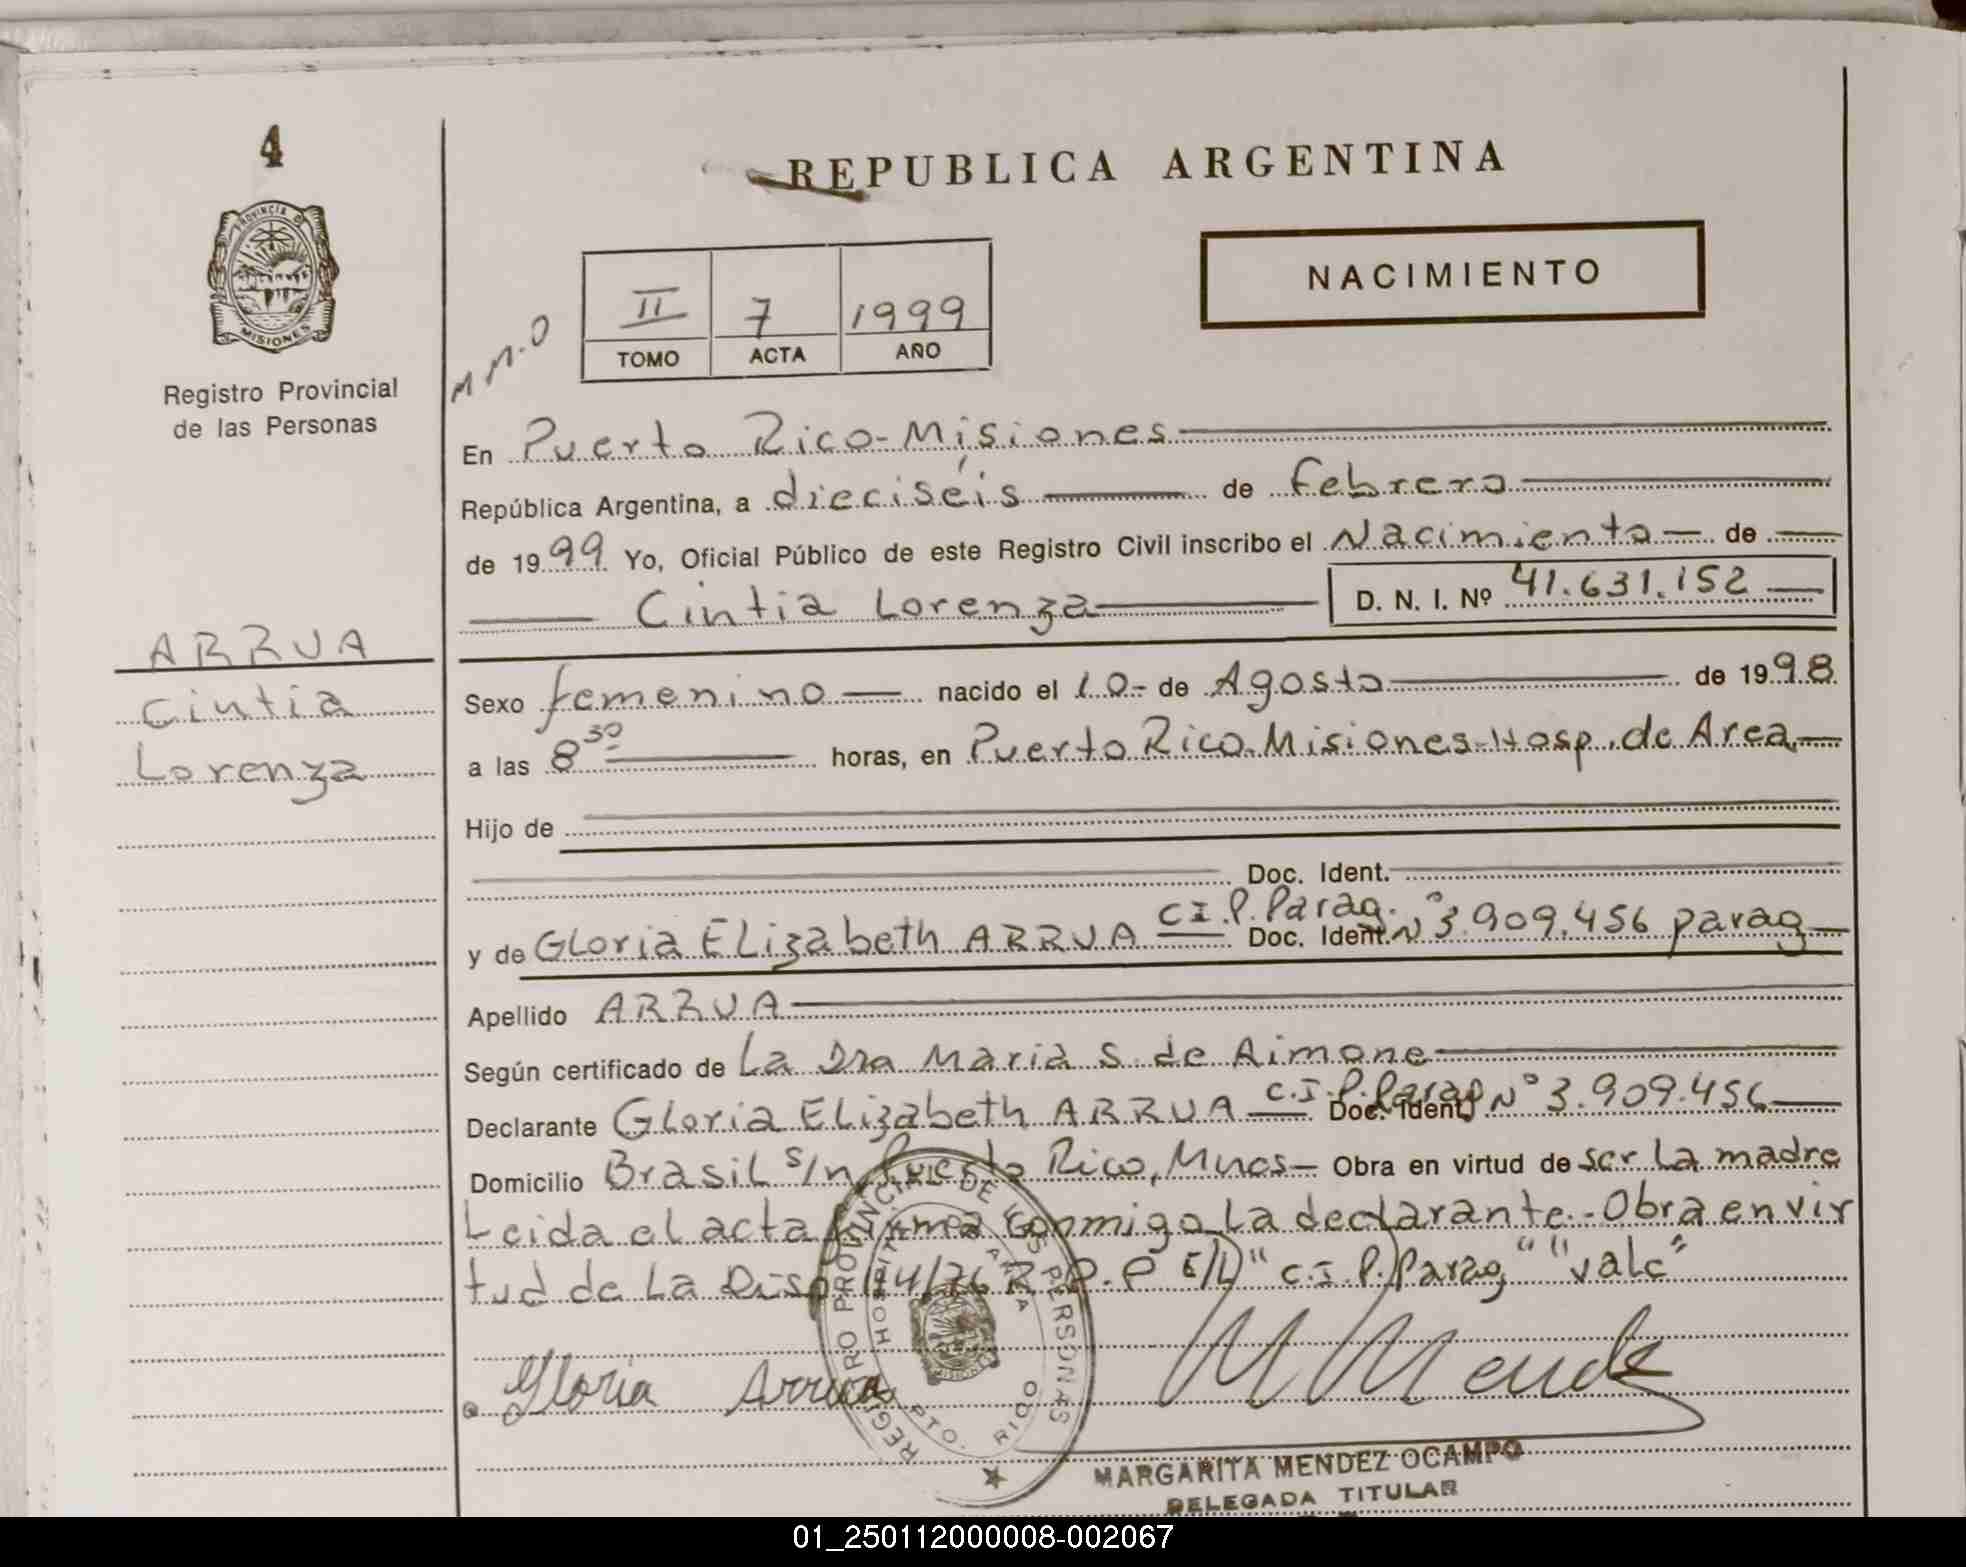 4
REPUBLICA ARGENTINA
PROVINCIA D
MISIONES
Registro Provincial
de las Personas
NACIMIENTO
II 7 1999
TOMO ACTA AÑO
En Puerto Rico-Misiones
República Argentina, a dieciséis de febrero
de 1999 Yo, Oficial Público de este Registro Civil inscribo el Nacimiento de
Cintia Lorenza D. N. I. Nº 41.631.152
ARRUA
Cintia
Lorenza
Sexo femenino nacido el 10- de Agosto de 1998
a las 8 30 horas, en Puerto Rico-Misiones-Hosp. de Area
Hijo de
Doc. Ident.
y de Gloria Elizabeth ARRUA C I. P. Parag. Doc. Ident. Nº 3.909.456 parag
Apellido ARRUA
Según certificado de La Dra Maria S. de Aimone
Declarante Gloria Elizabeth ARRUA C.I.P. Parag Doc. Ident. Nº 3.909.456
Domicilio Brasil s/n Puerto Rico, Mnes Obra en virtud de ser La madre
Leida el acta firma conmigo La declarante.- Obra en vir
tud de La Disp. 114/76 R.P.P E/L) " C.I.P. Parag " " vale "
Gloria Arrua
M Mendez
REGISTRO PROVINCIAL DE LAS PERSONAS
PTO. RICO
MARGARITA MENDEZ OCAMPO
DELEGADA TITULAR
01_250112000008-002067